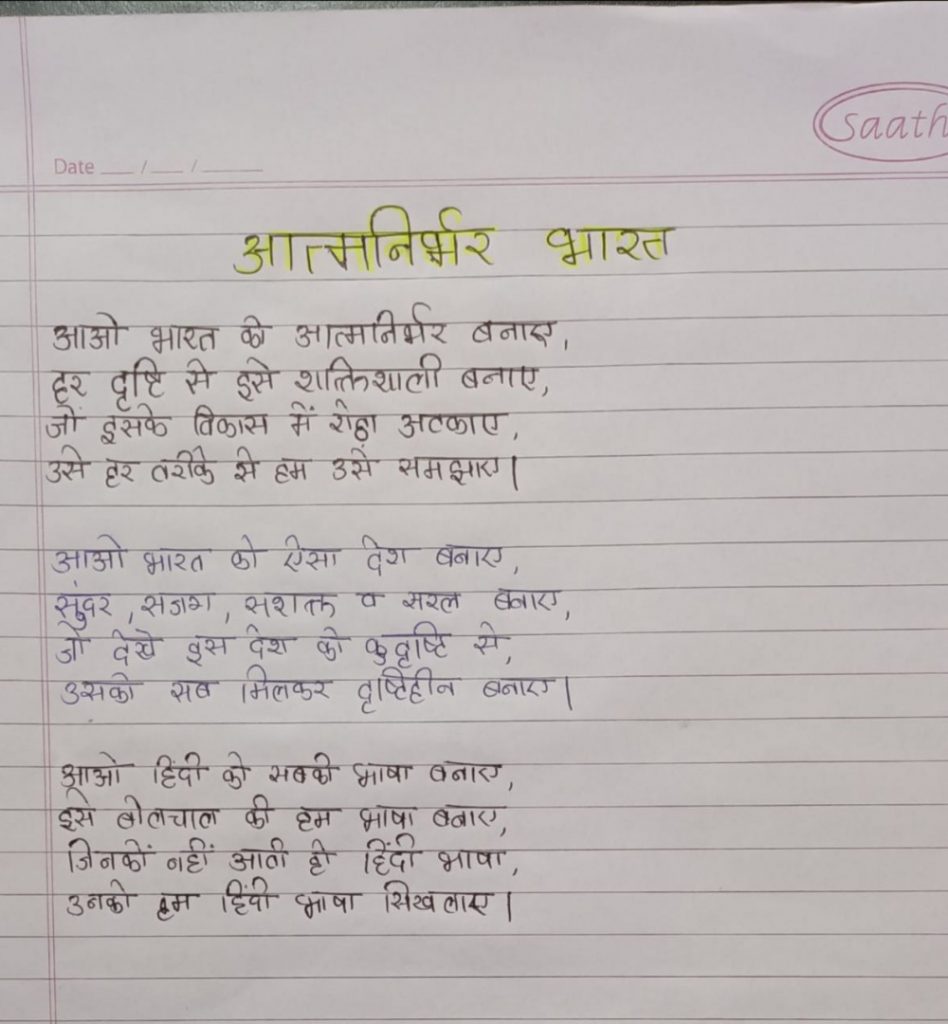 saath
Date __/__/____
आत्मनिर्भर भारत
आओ भारत को आत्मनिर्भर बनाए,
हर दृष्टि से इसे शक्तिशाली बनाए,
जो इसके विकास में रोड़ा अटकाए,
उसे हर तरीके से हम उसे समझाए।
आओ भारत को ऐसा देश बनाए,
सुंदर, सजग, सशक्त व सरल बनाए,
जो देखे इस देश को कुदृष्टि से,
उसको सब मिलकर दृष्टिहीन बनाए।
आओ हिंदी को सबकी भाषा बनाए,
इसे बोलचाल की हम भाषा बनाए,
जिनकों नहीं आती हो हिंदी भाषा,
उनको हम हिंदी भाषा सिखलाए।